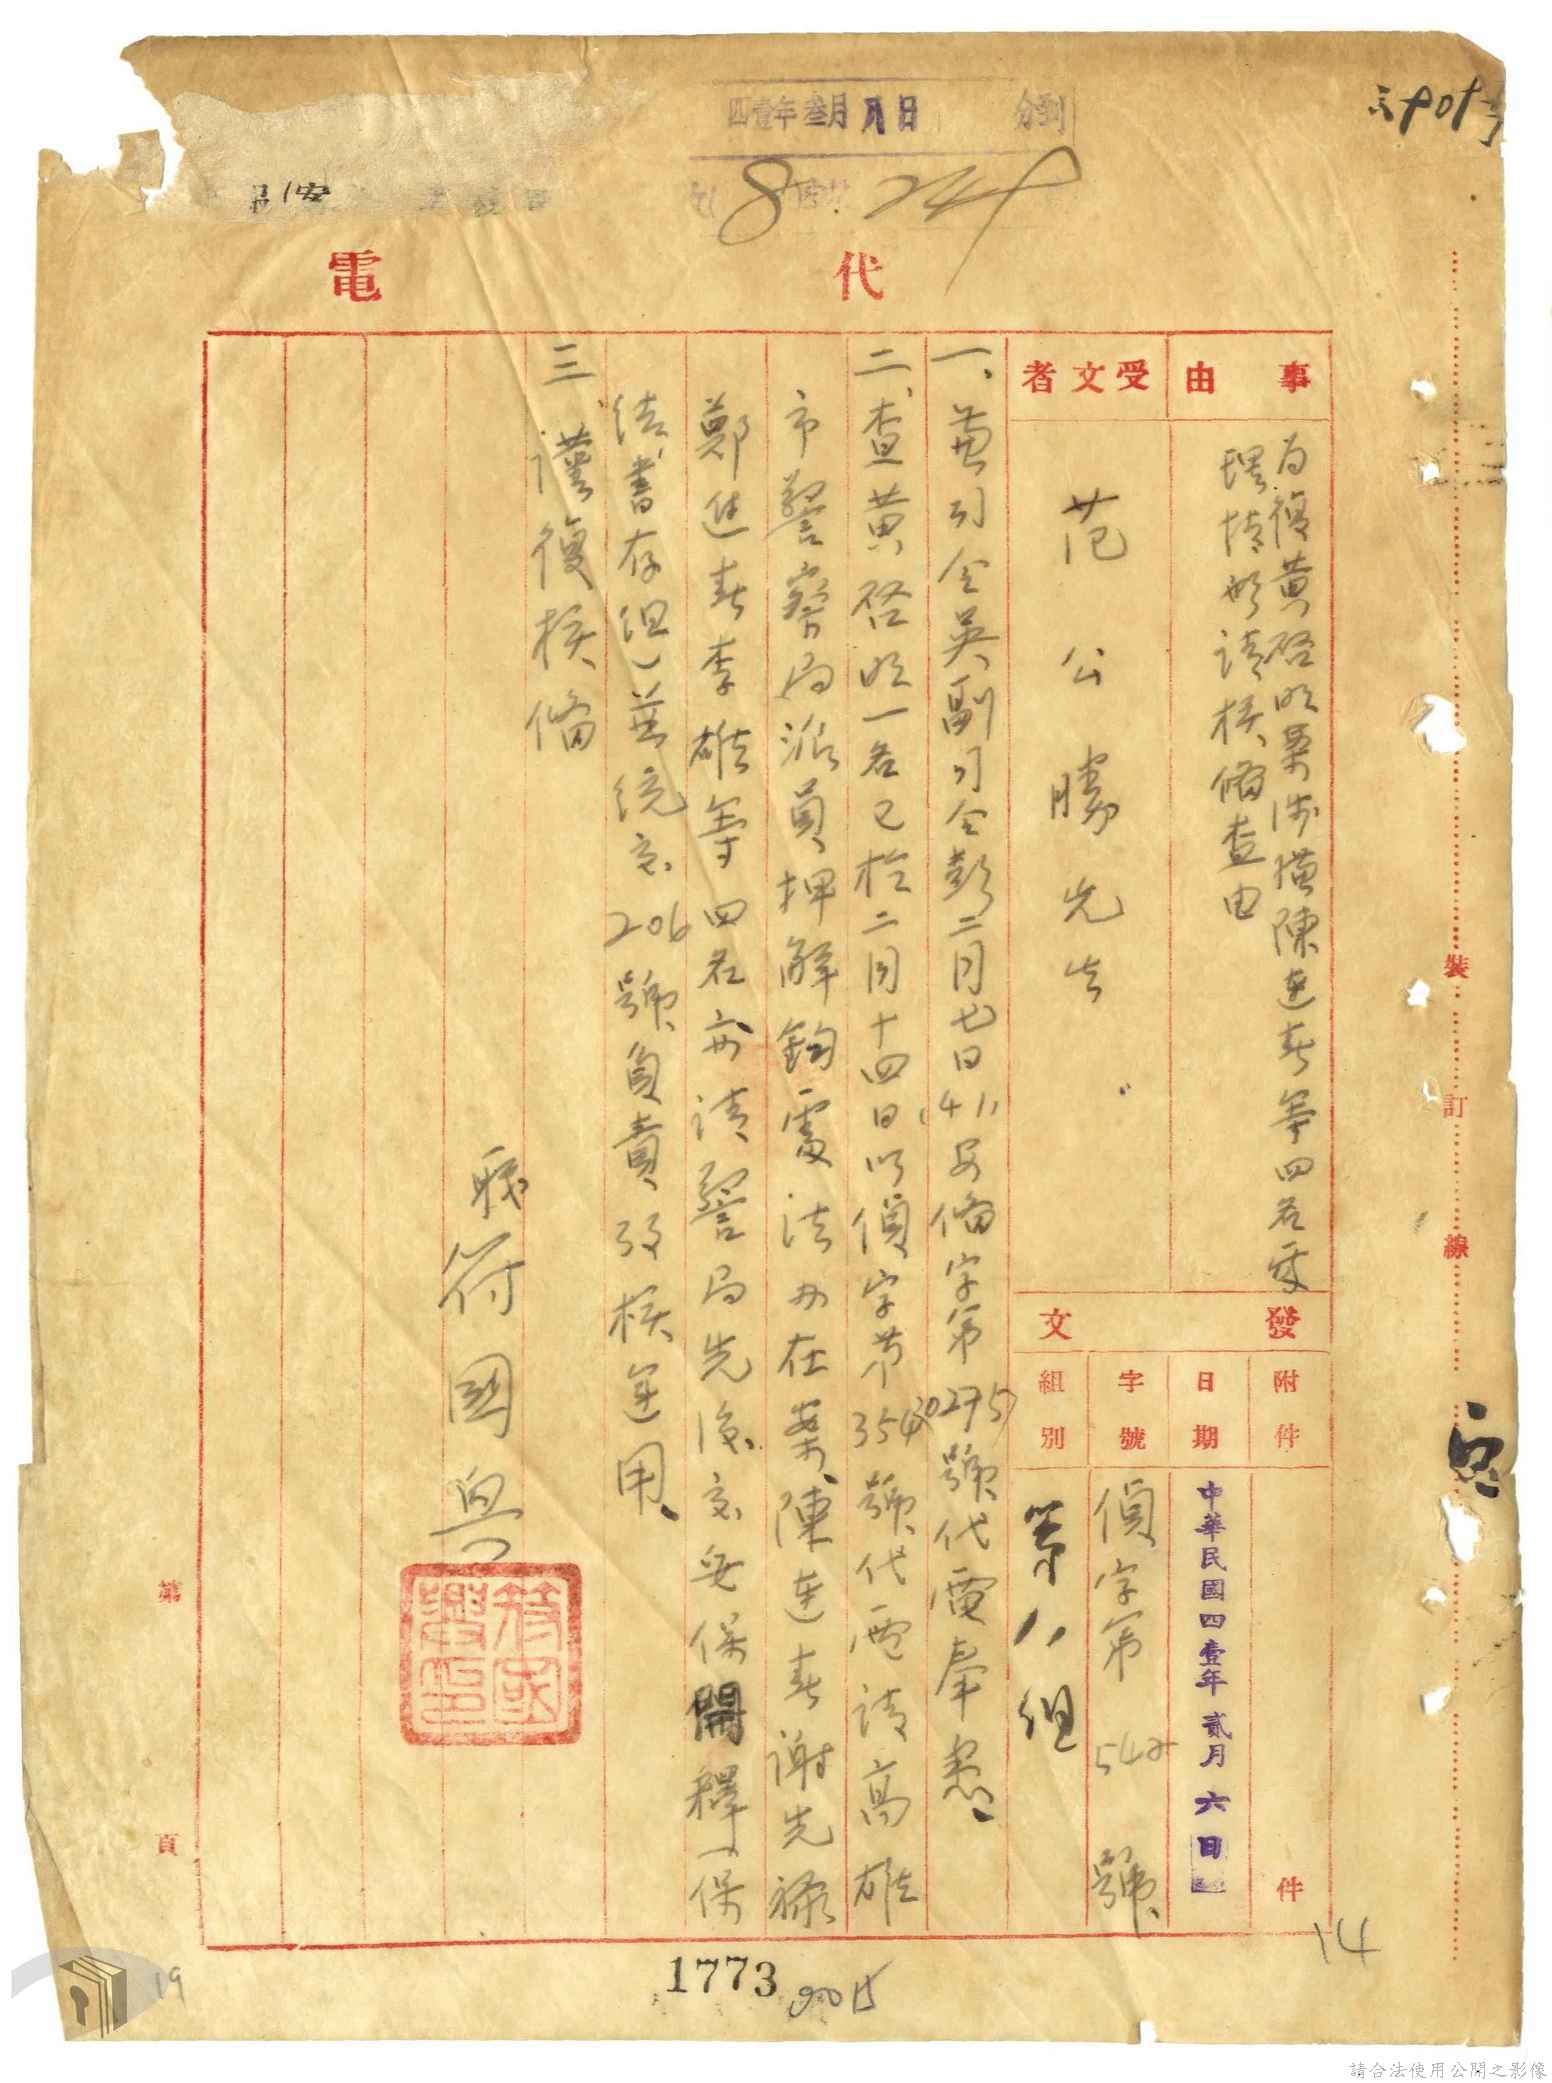 四壹年叁月八日
分到
8
代電
事由
為復黃啓明案涉嫌陳連春等四名處
理情形請核備查由
受文者
范公勝先生
發文
附件
件
日期
中華民國四壹年貳月六日
字號
偵字第542號
組別
第八組
一、黃司令吳副司令彭二月七日(41)安備字第0275號代電奉悉、
二、查黃啓明一名已於二月十四日以偵字第354號代電請高雄
市警察局派員押解鈞處法办在案、陳連春謝先祿
鄭進春李雄等四名亦請警局先後交妥保開釋(保
結書存組)並統交206號負責攷核運用、
三、謹復核備
職符國興
符國興印
裝訂線
第頁
1773
14
19
請合法使用公開之影像